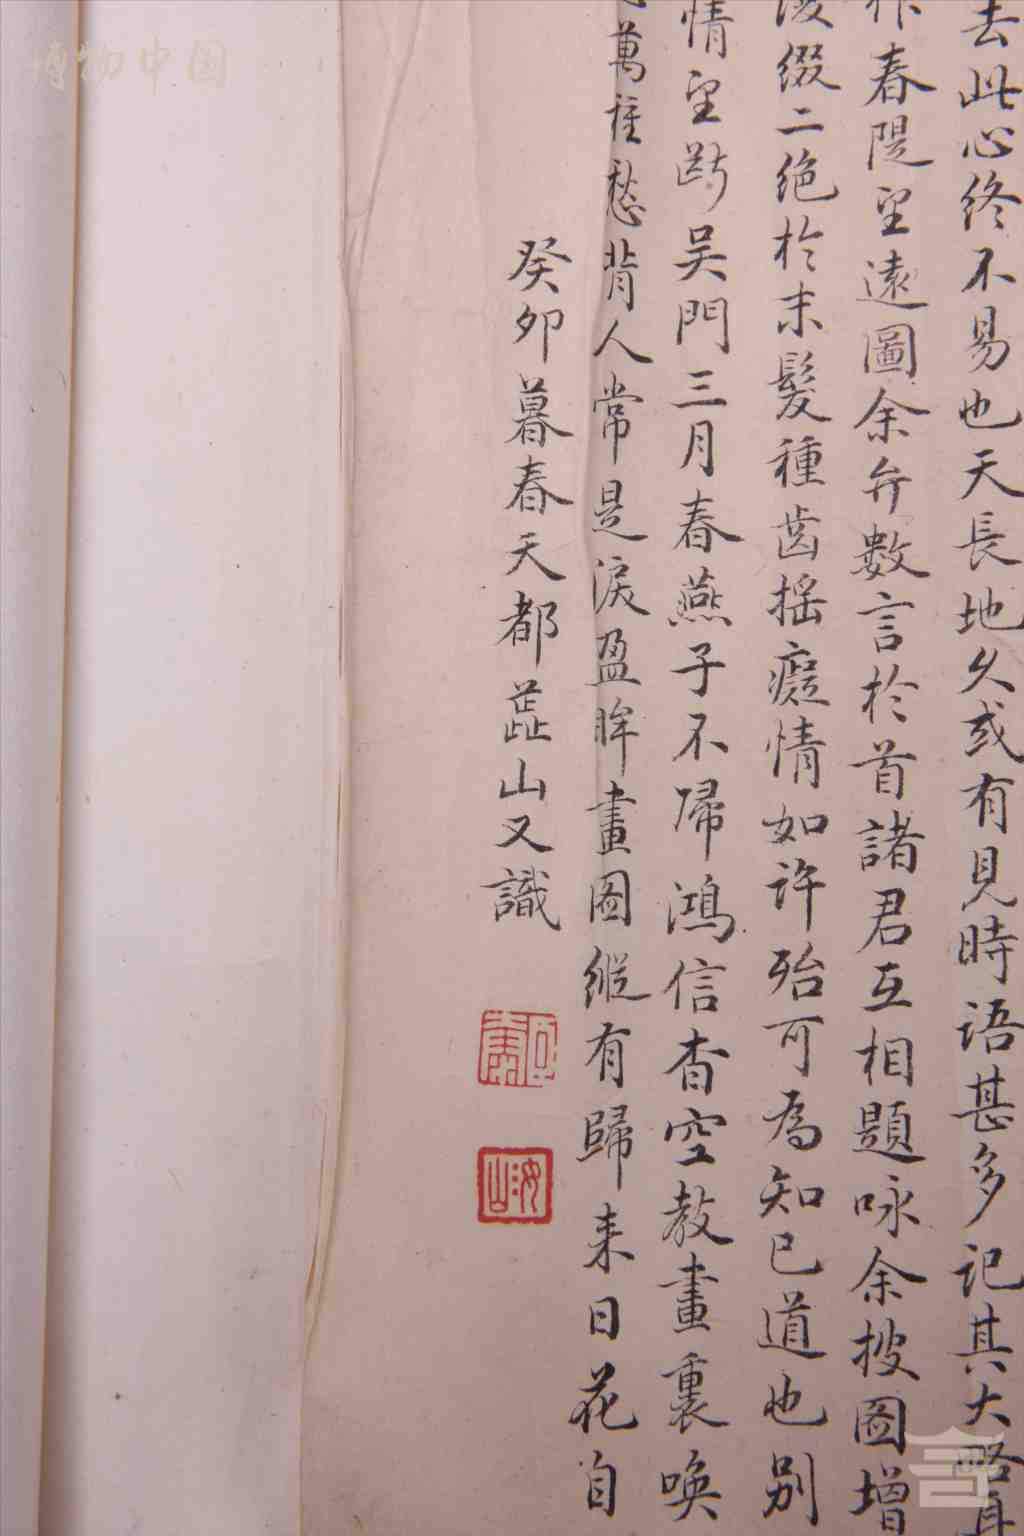 去此心终不易也天長地久或有見時語甚多記其大略
作春隄望遠圖余弁數言於首諸君互相題咏余披圖增
綴二绝於末髮種齒摇癡情如许殆可為知己道也别
情望断吴門三月春燕子不歸鴻信杳空教畫裏唤
萬種愁背人常是淚盈眸畫图縱有歸来日花自
癸卯暮春天都蕋山又識
汝山
博物中国